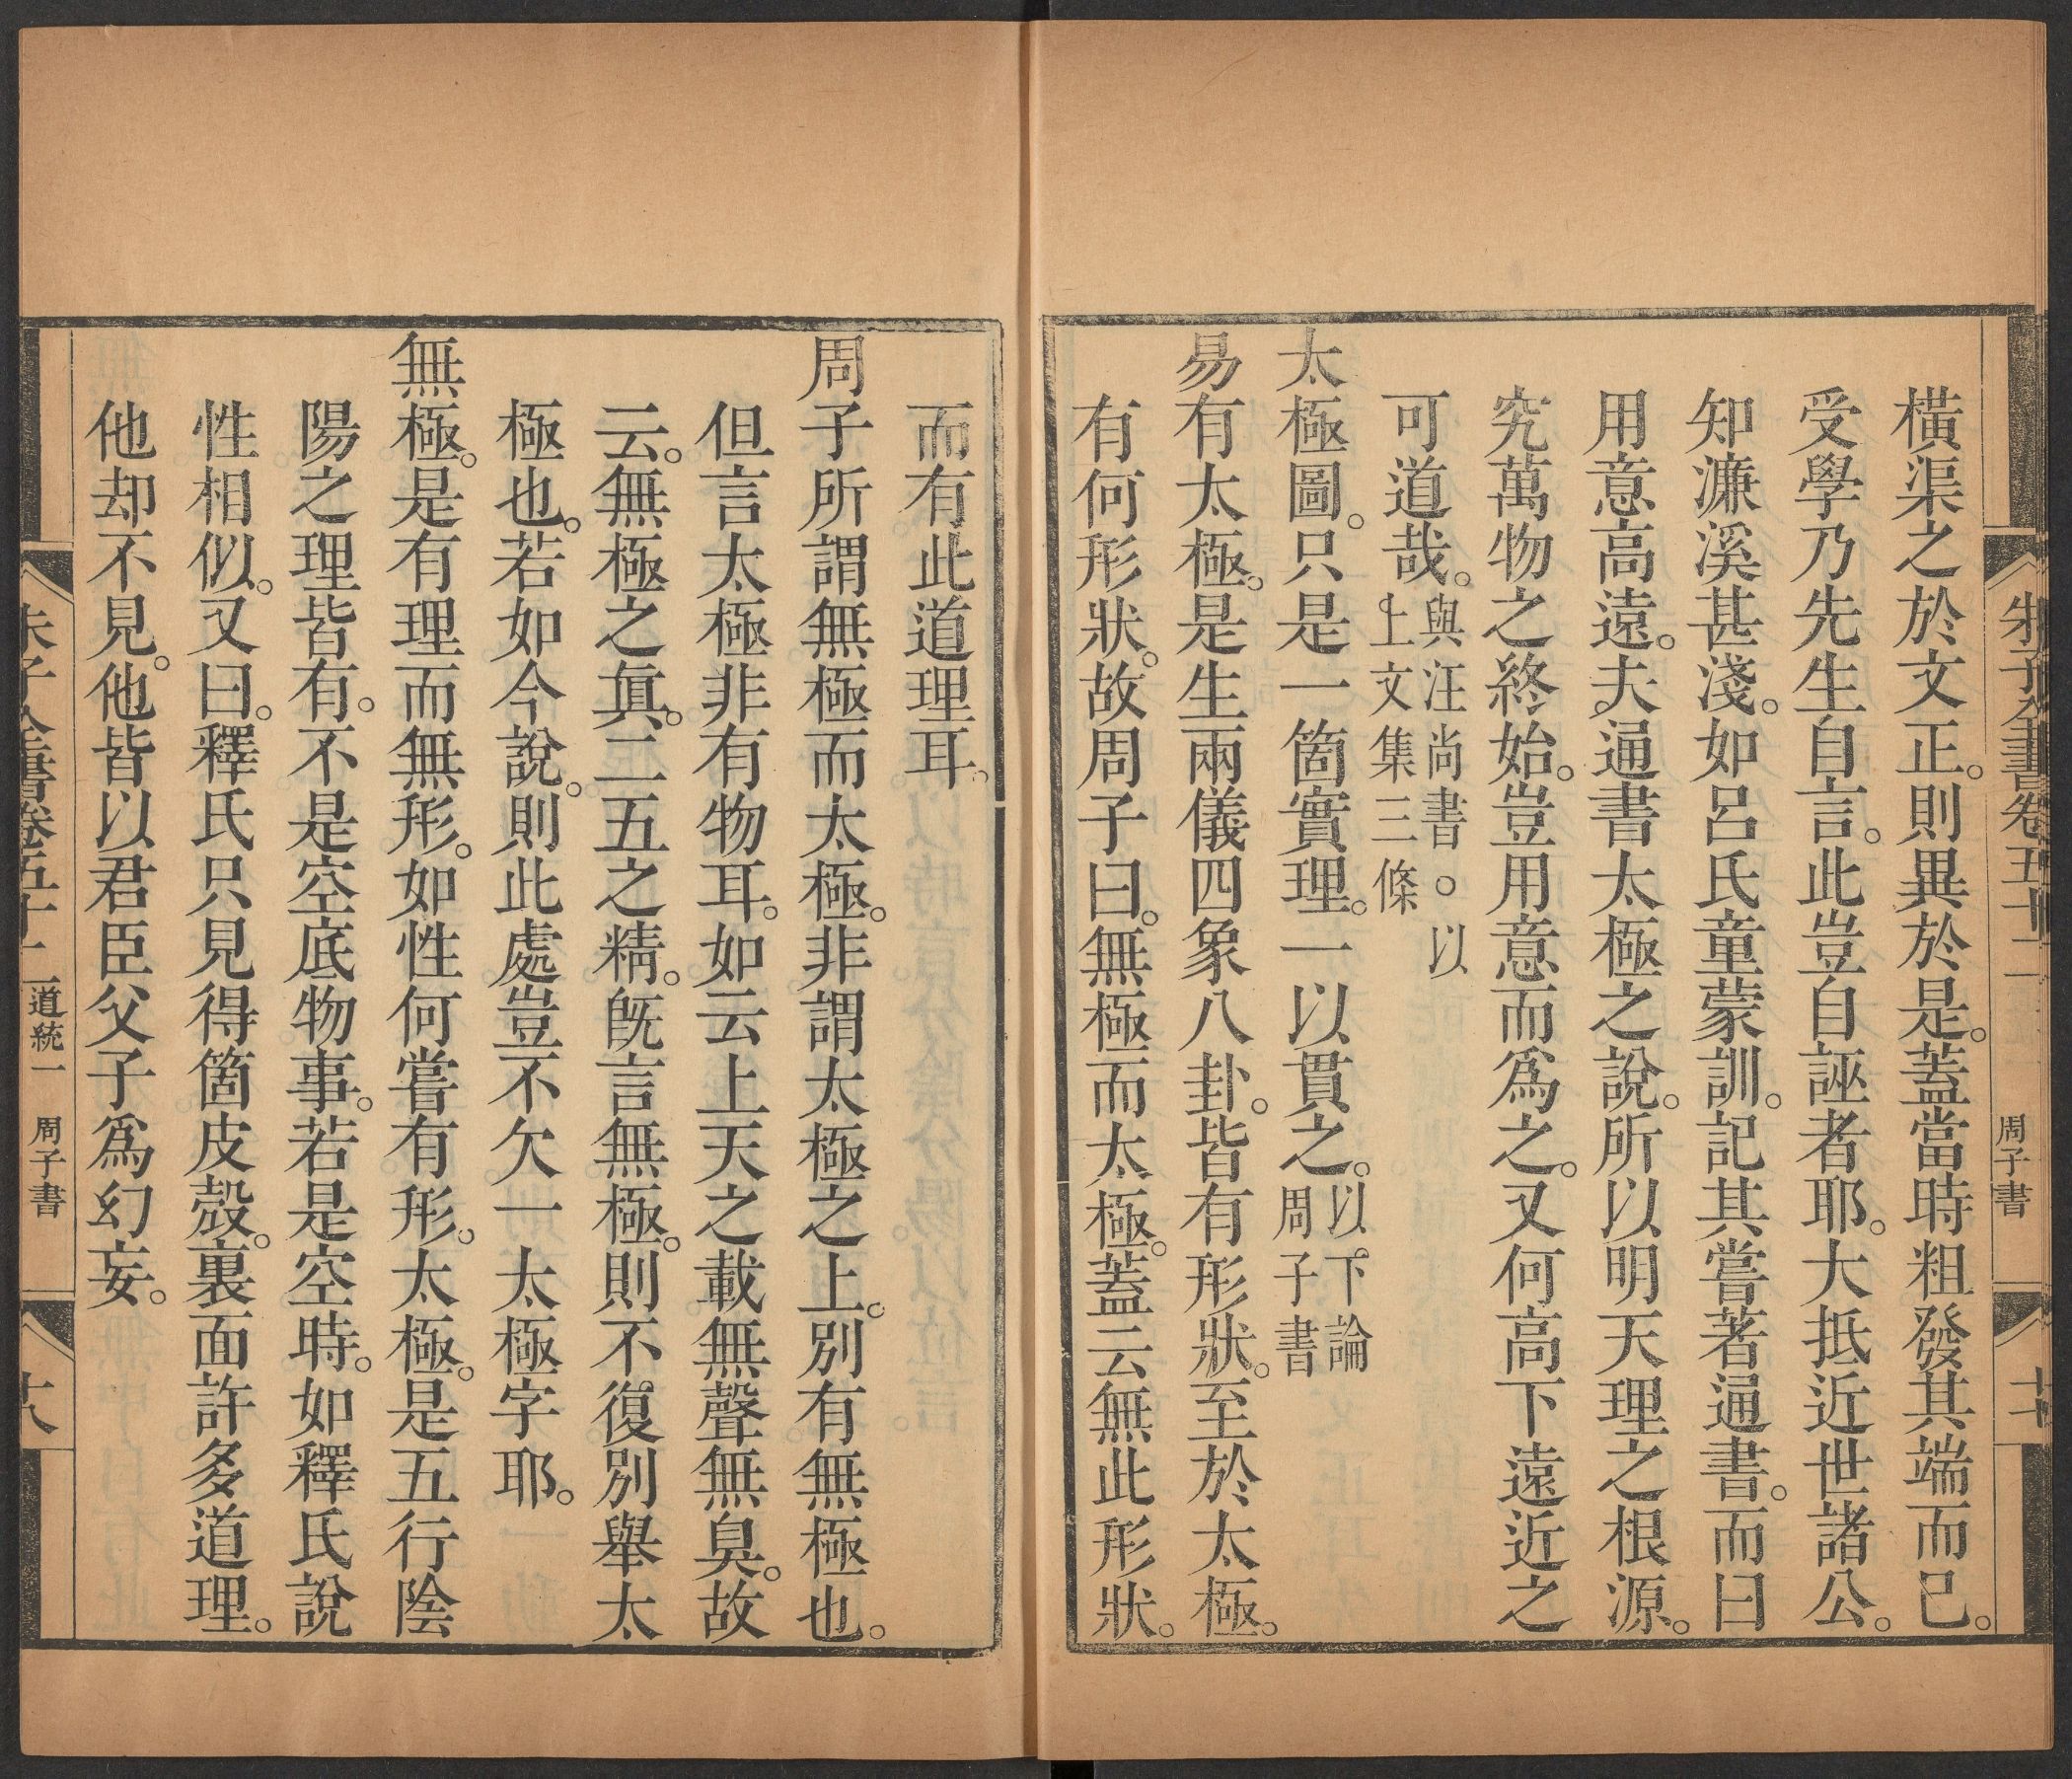 朱子全書卷五十二 周子書 十七
橫渠之於文正。則異於是。蓋當時粗發其端而已。
受學乃先生自言。此豈自誣者耶。大抵近世諸公。
知濂溪甚淺。如呂氏童蒙訓。記其嘗著通書。而曰
用意高遠。夫通書太極之說。所以明天理之根源。
究萬物之終始。豈用意而為之。又何高下遠近之
可道哉。與汪尚書。○以
上文集三條
太極圖。只是一箇實理。一以貫之。以下論
周子書
易有太極。是生兩儀四象八卦。皆有形狀。至於太極。
有何形狀。故周子曰。無極而太極。蓋云無此形狀。
而有此道理耳。
周子所謂無極而太極。非謂太極之上。別有無極也。
但言太極非有物耳。如云上天之載無聲無臭。故
云。無極之真。二五之精。旣言無極。則不復別舉太
極也。若如今說。則此處豈不欠一太極字耶。
無極。是有理而無形。如性何嘗有形。太極。是五行陰
陽之理皆有。不是空底物事。若是空時。如釋氏說
性相似。又曰。釋氏只見得箇皮殼。裏面許多道理。
他却不見。他皆以君臣父子爲幻妄。
朱子全書卷五十二 道統一 周子書 十八